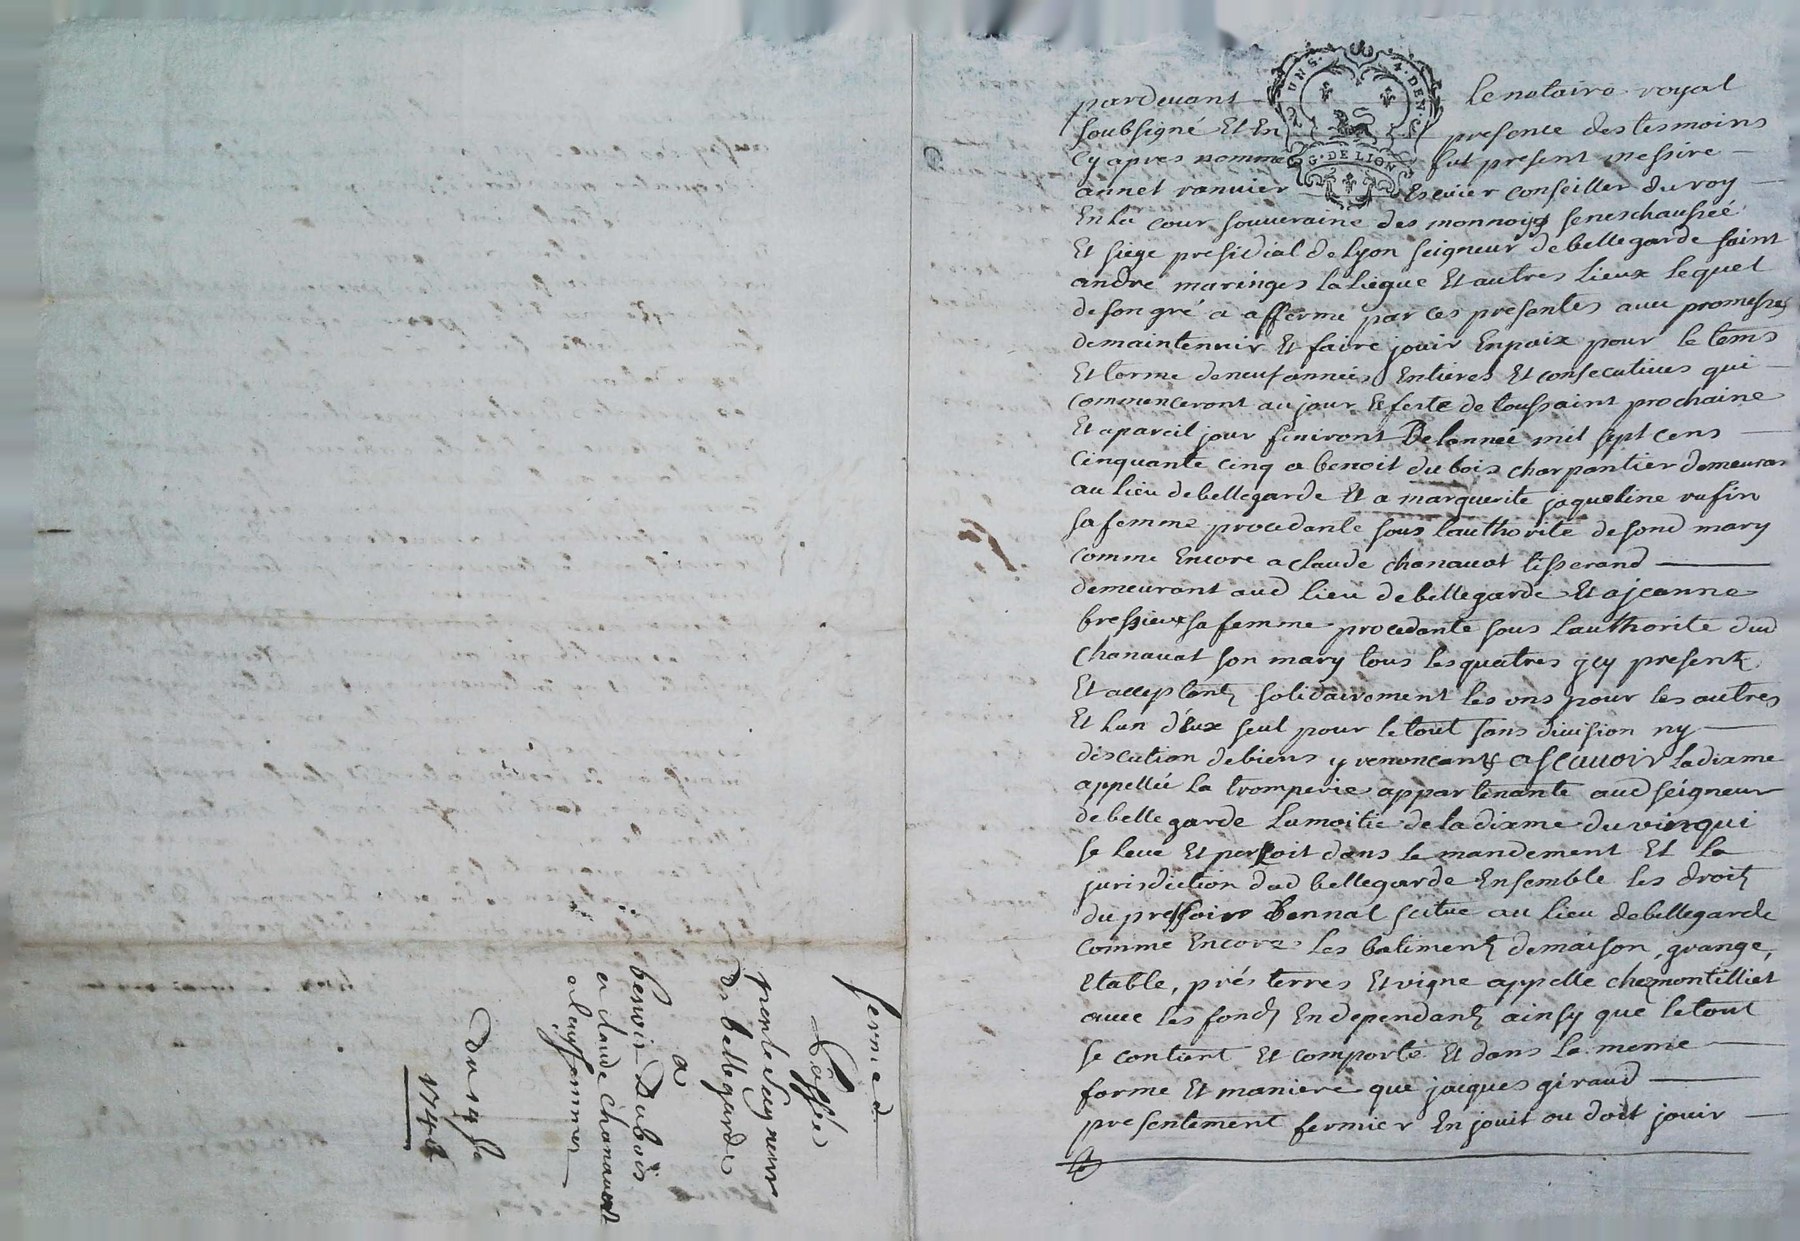 UN S. 4. DEN.
G. DE LION
pardevant le notaire royal
soubsigné Et En presence des tesmoins
Cy apres nommé fut present messire
annet ranvier Escuier conseiller du roy
En la cour souveraine des monnoyes seneschaussée
Et siege presidial de lyon seigneur de bellegarde saint
andré maringes la liegue Et autres lieux lequel
de son gré a affermé par ces presentes avec promesses
de maintennir Et faire jouir En paix pour le tems
Et terme de neuf années Entieres Et consecutives qui
commenceront au jour Et feste de toussaint prochaine
Et a pareil jour finiront De lannée mil sept cens
cinquante cinq a benoit du bois charpantier demeuran
au lieu de bellegarde Et a marguerite jaqueline rufin
sa femme procedante sous lauthorité de sond mary
comme Encore a claude chanavat tisserand
demeurant aud lieu de bellegarde Et a jeanne
bressieux sa femme procedante sous lauthorité dud
chanavat son mary tous les quatres jcy present
Et acceptant solidairement les uns pour les autres
Et lun d'eux seul pour le tout sans division ny
discution de biens y renoncant a scavoir la dixme
appellée la tromperie appartenante aud séigneur
de bellegarde La moitié de la dixme du vin qui
se leve Et persoit dans le mandement Et la
jurisdiction dud bellegarde Ensemble les droit
du pressoir Bannal scitue au lieu de bellegarde
comme Encore les batiment de maison, grange,
Etable, prés terres Et vigne appelle chez montilliet
avec les fond En dependant ainsy que le tout
se contient Et comporte Et dans la meme
forme Et maniere que jacques giraud
presentement fermier En jouit ou doit jouir
ferme d
passée
par le Seigneur
de bellegarde
a
benoit Dubois
et claude chanavat
Du 14 
1746